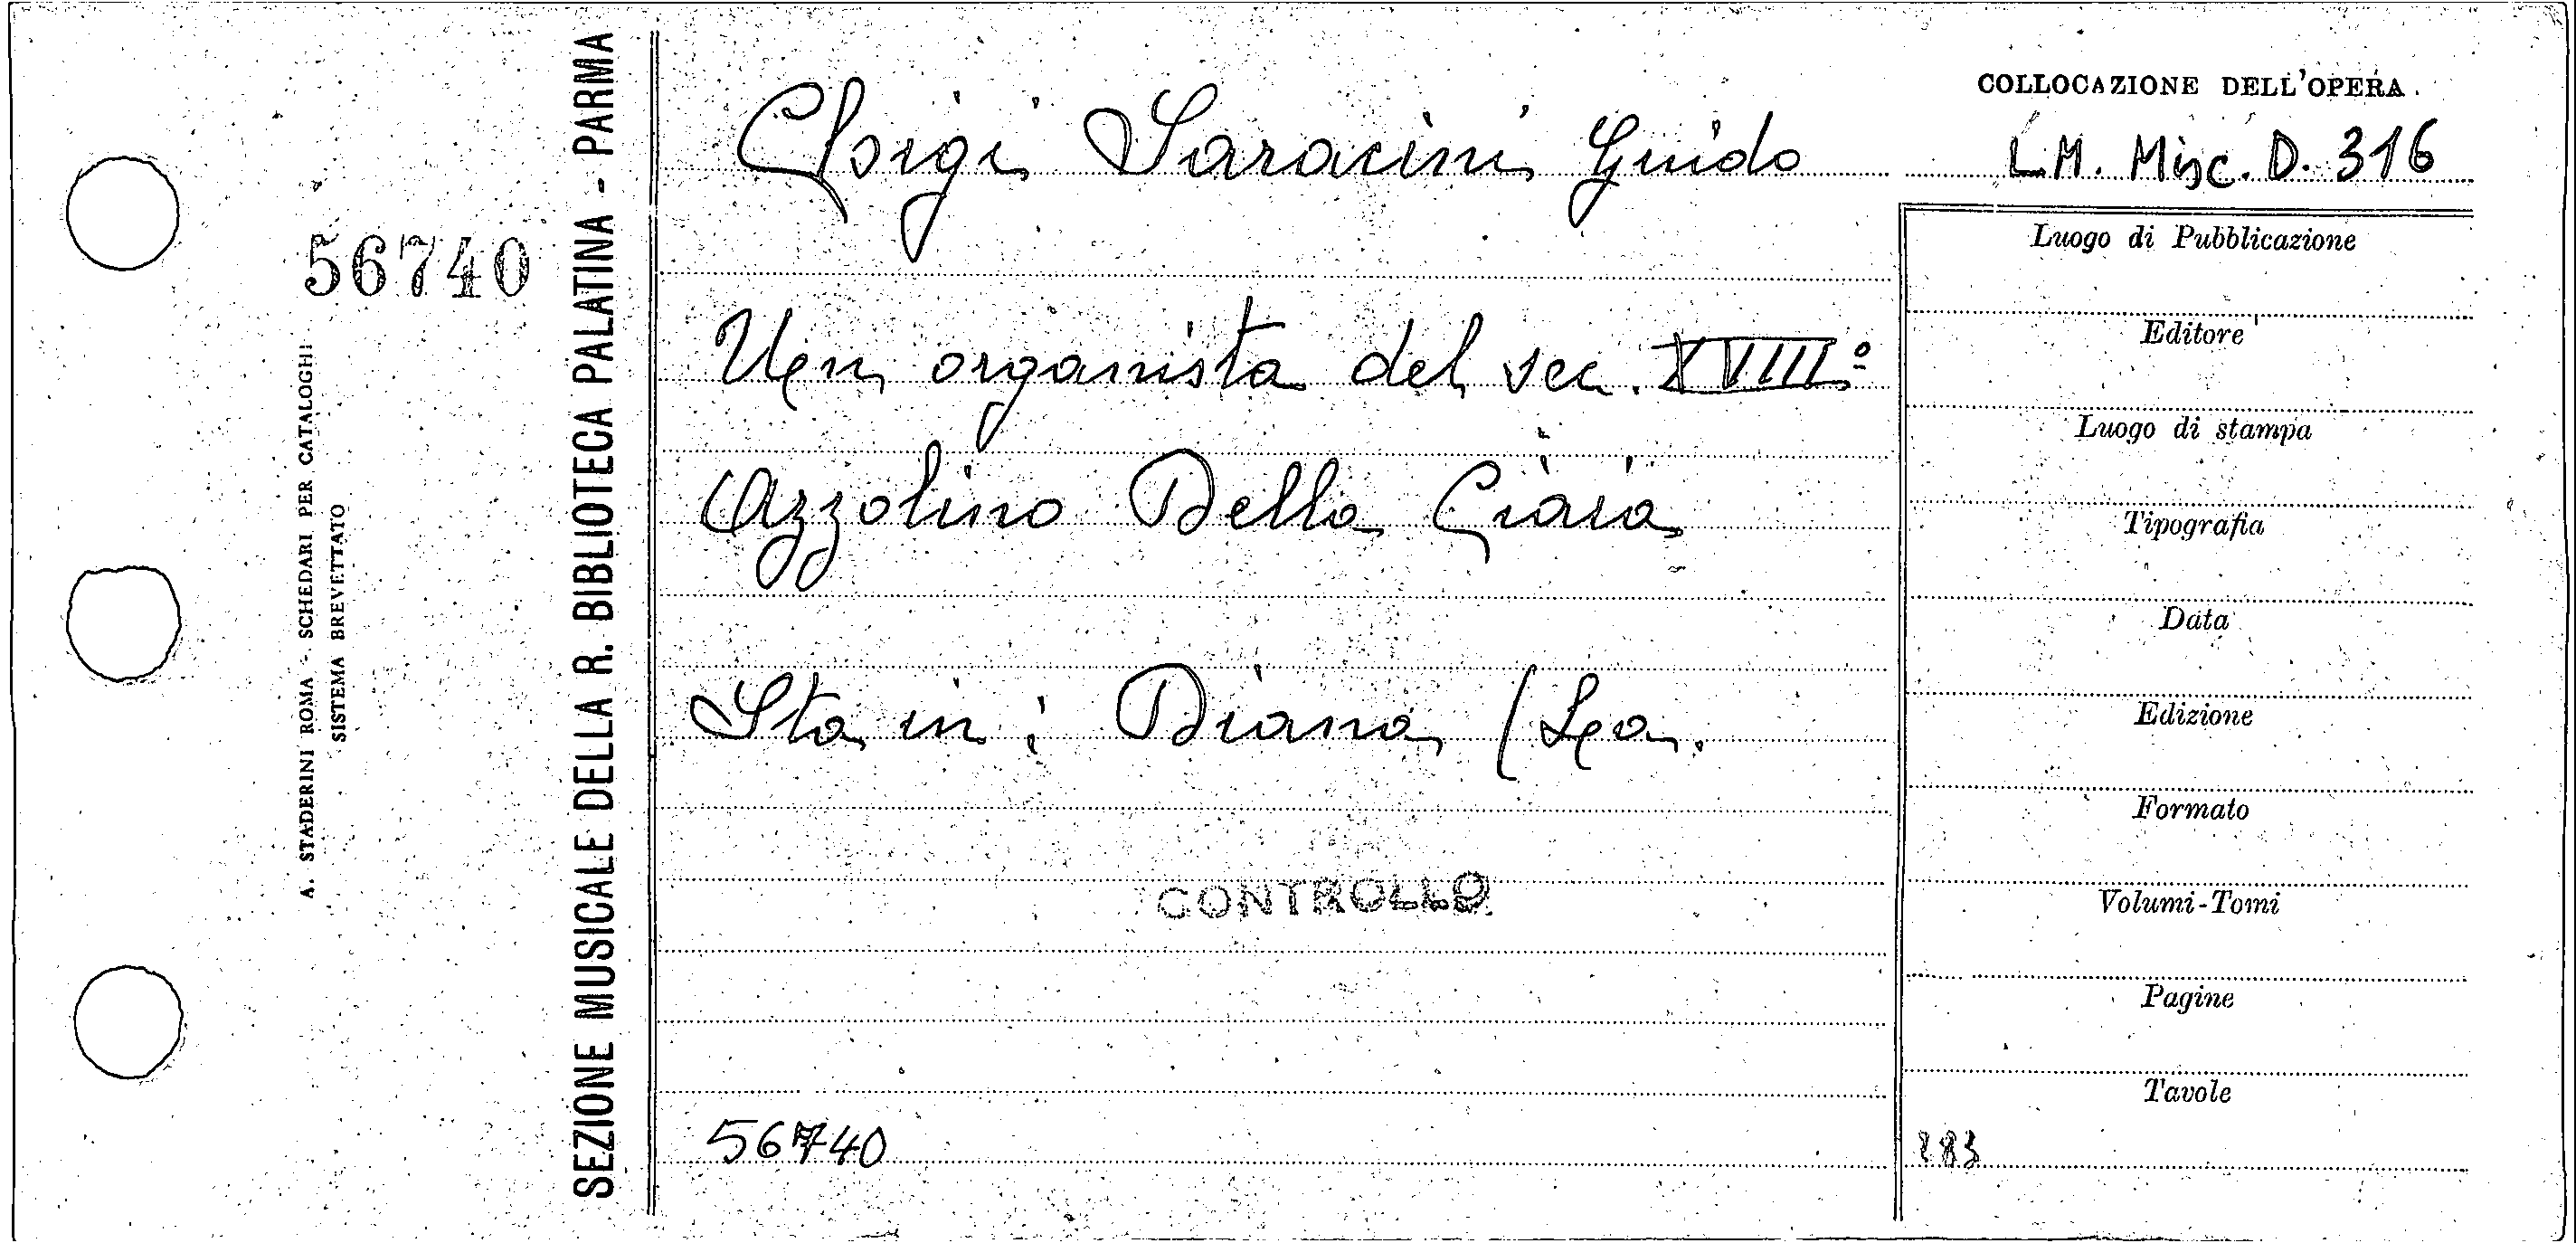 56740
A. STADERINI ROMA - SCHEDARI PER CATALOGHI
SISTEMA BREVETTATO
SEZIONE MUSICALE DELLA R. BIBLIOTECA PALATINA - PARMA
Chigi Saracini Guido
Un organista del sec. XVIIIº
Azzolino Della Ciaia
Sta in: Diana (Lea.
CONTROLLO
56740
COLLOCAZIONE DELL'OPERA
L.M. Misc. D. 316
Luogo di Pubblicazione
Editore
Luogo di stampa
Tipografia
Data
Edizione
Formato
Volumi-Tomi
Pagine
Tavole